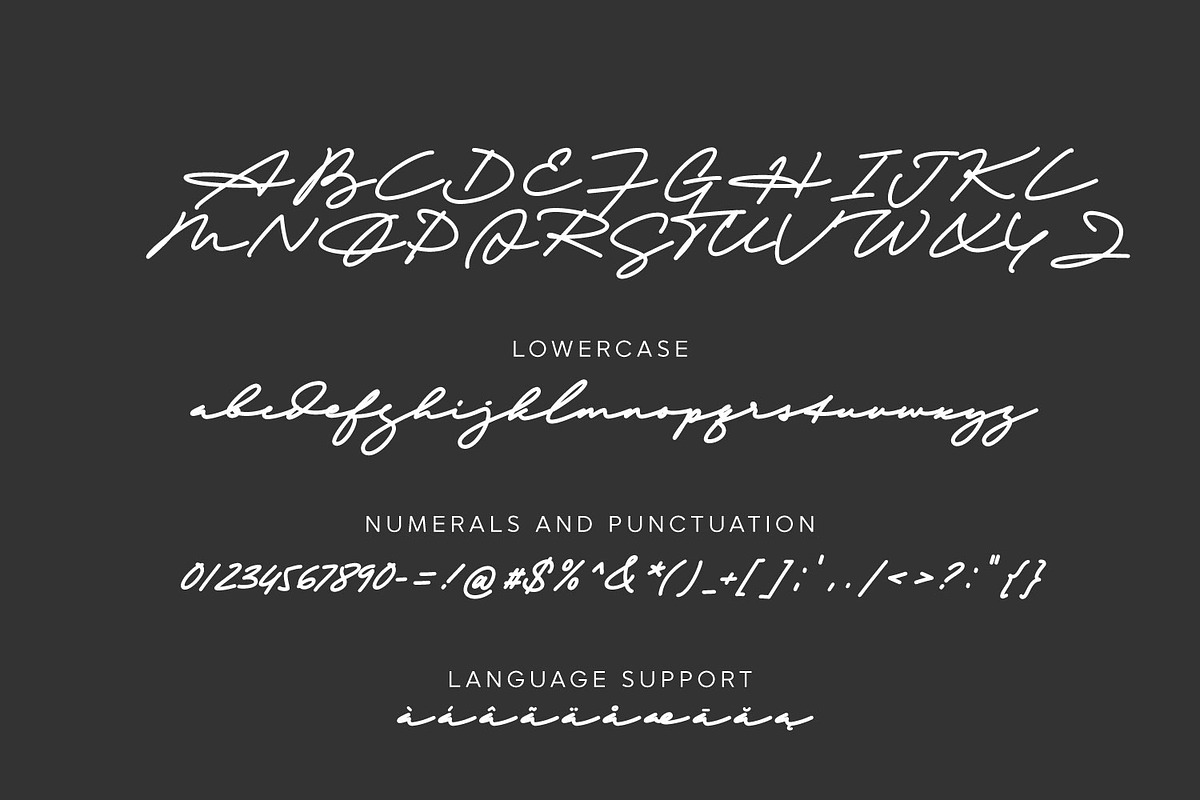 ABCDEFGHIJKL
MNOPQRSTUVWXYZ
LOWERCASE
abcdefghijklmnopqrstuvwxyz
NUMERALS AND PUNCTUATION
01234567890-=!@#$%^&*()_+[];',./<>?:"{}
LANGUAGE SUPPORT
àáâãäåæāăą